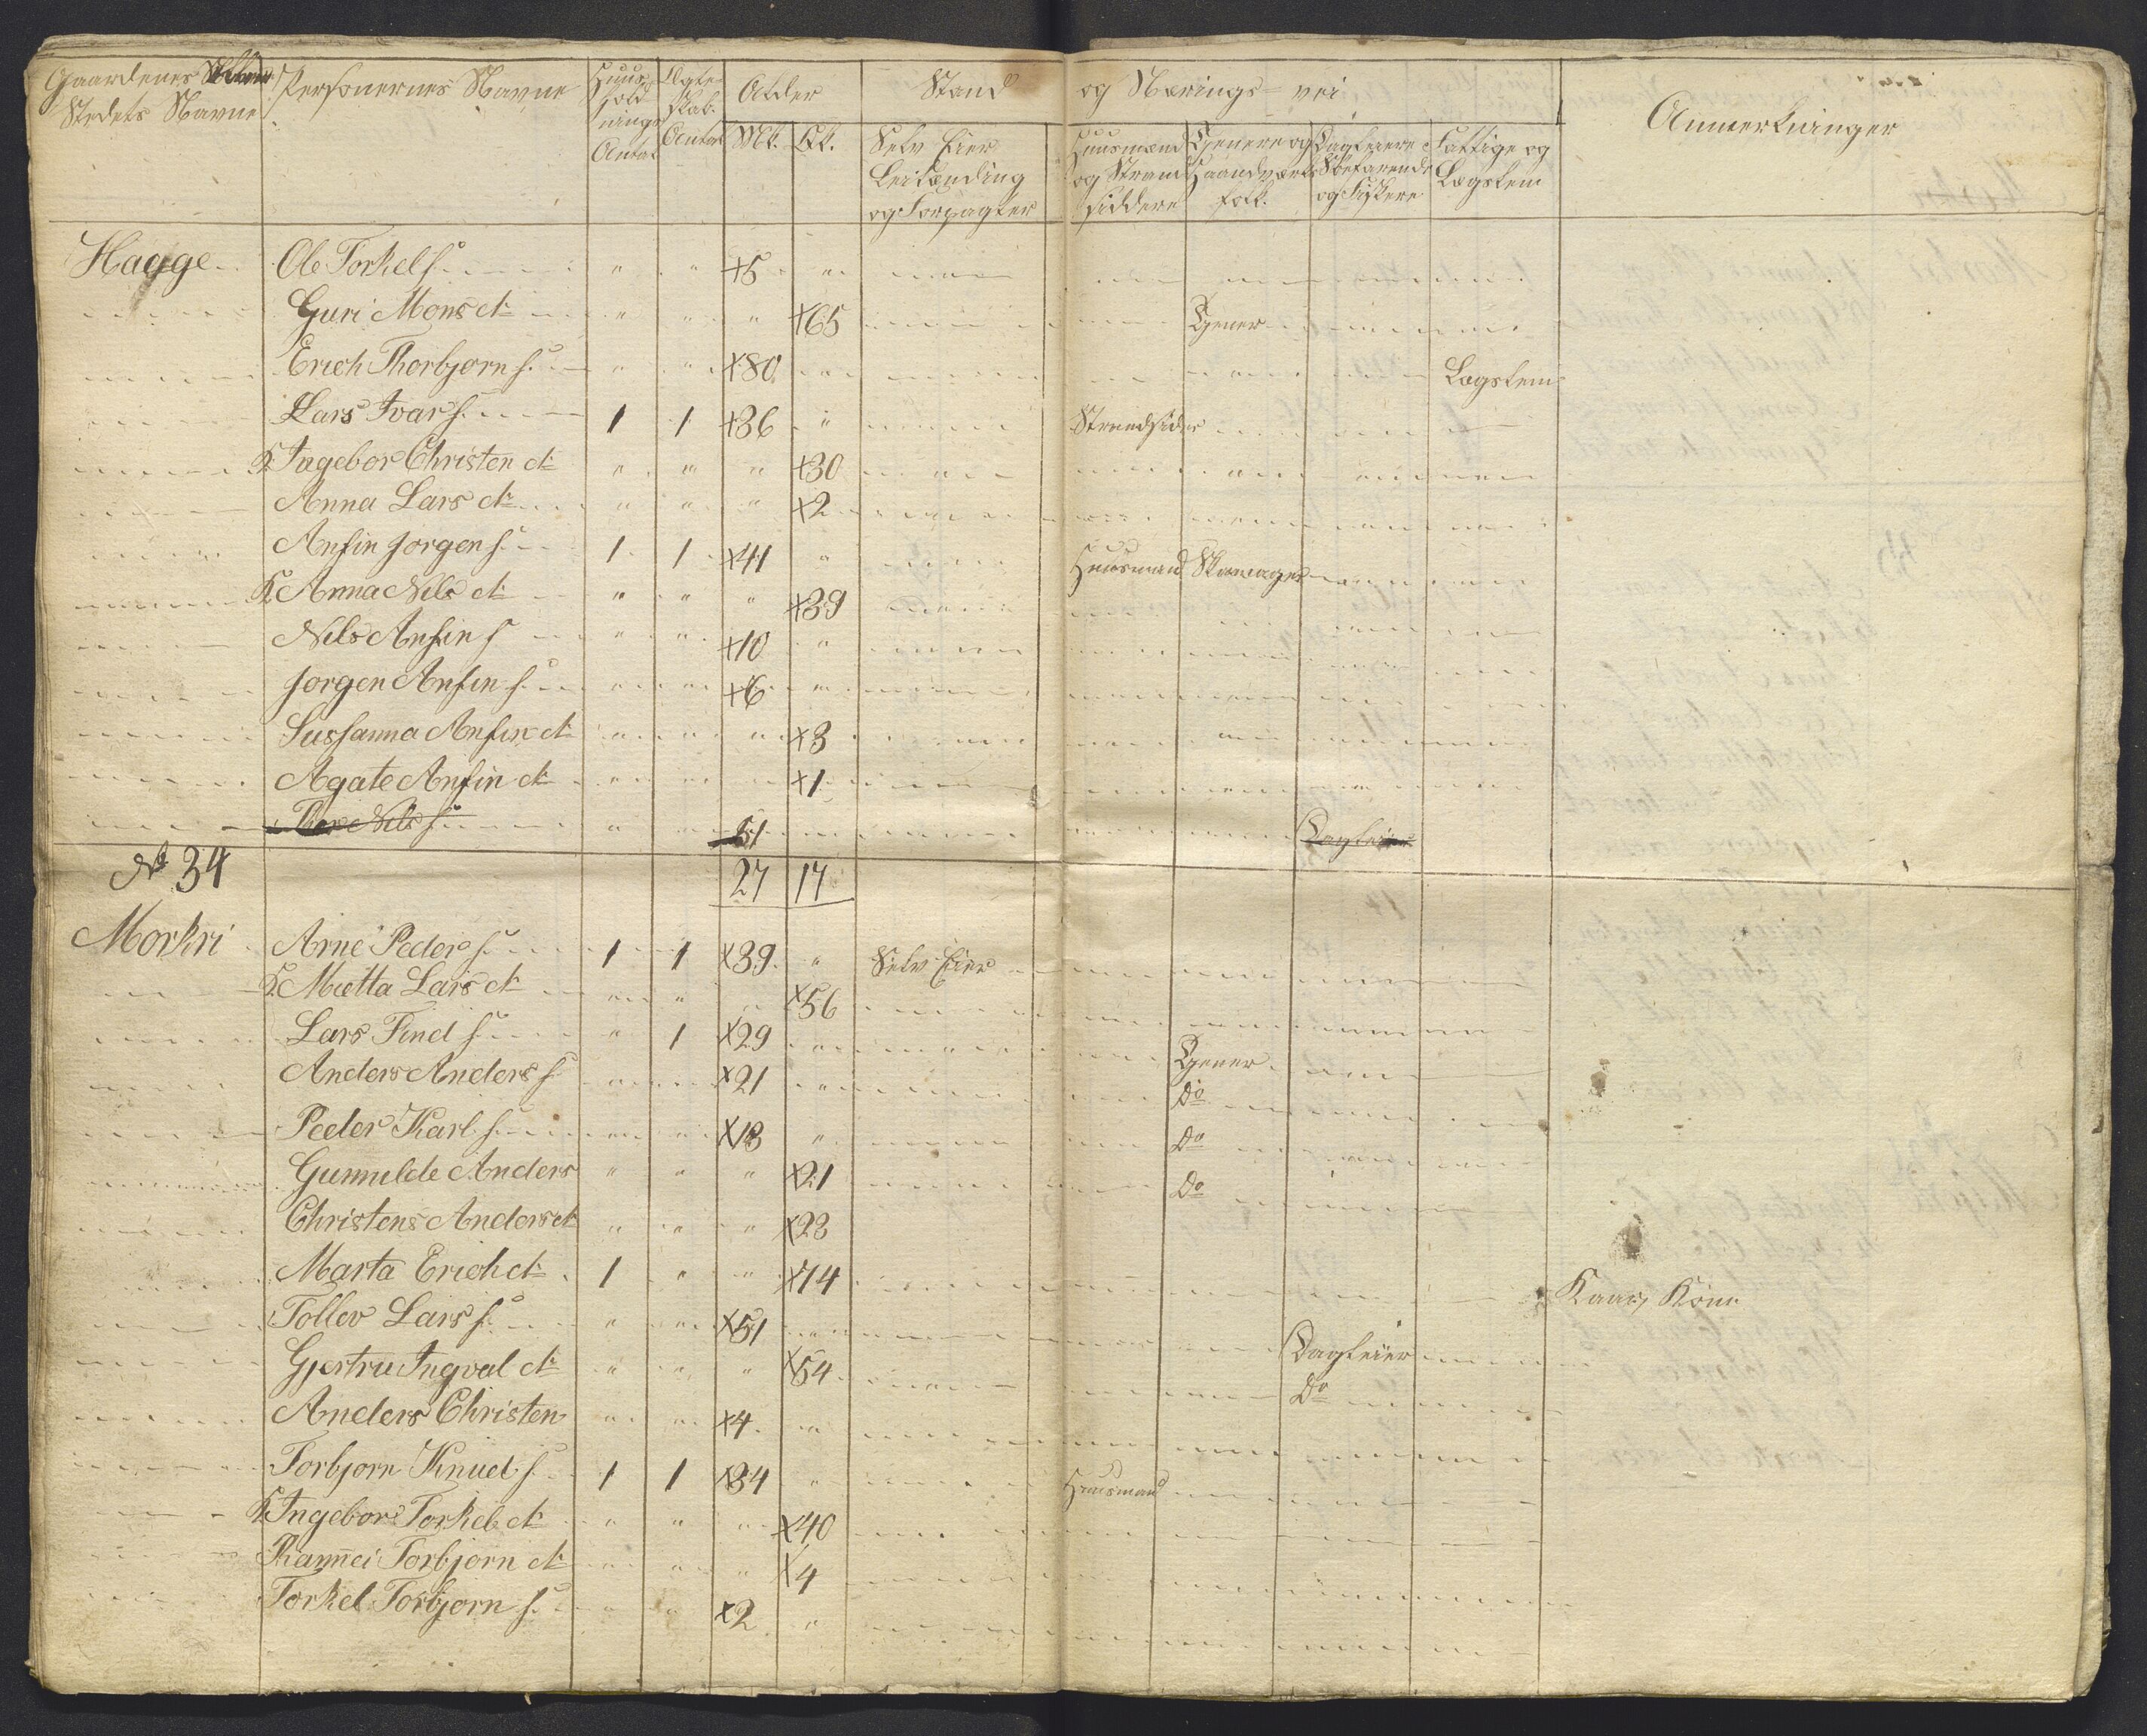 Gaardenes Stedets Navne | Personernes Navne | Huus holdnings Antal | Ægte skab. Antal | Alder | Stand og Nærings= vei | Anmerkninger
Mk. | Qk. | Selv Eier Leilænding og Forpagter | Huusmænd og Strandsiddere | Tjenere og Haandværks folk. | Dagleiere Søefarende og Fiskere | Fattige og Lægslem
Haage Ole Torkels. " " +5 "
Guri Mons d: " " " +65 Tjener
Erich Thorbjorn s. " " +80 " Lægslem
Lars Ivar s. 1 1 +36 " Strandsider
K. Ingebor Christen d: " " " +30
Anna Lars d: " " " +2
Anfin Jorgen s. 1 1 +41 " Huusmand Skomager
K. Anna Nels d: " " " +39
Nels Anfin s " " +10 "
Jorgen Anfin s. " " +6 "
Sussanna Anfin d: " " " +3
Agate Anfin d: " " " +1
Thor Nels s. " " 51 " Dagleier
No 34 27 17
Morkri Arne Peder s. 1 1 +39 " Selv Eier
K. Mætta Lars d: " " " +56
Lars Find s. " 1 +29 " Tjener
Anders Anders s. " " +21 " Do
Peder Karl s. " " +13 " Do
Gunnilde Anders " " " +21 Do
Christens Anders d: " " " +23
Marta Erich d: 1 " " +74 Kaar Kone
Tollev Lars s. " " +51 " Dagleier
Gjertru Ingval d: " " " +54 Do
Anders Christen " " +4 "
Torbjorn Knud s. 1 1 +34 " Huusmand
K. Ingebor Torkel d: " " " +40
Rannei Torbjorn d: " " " +4
Torkel Torbjorn s. " " +2 "